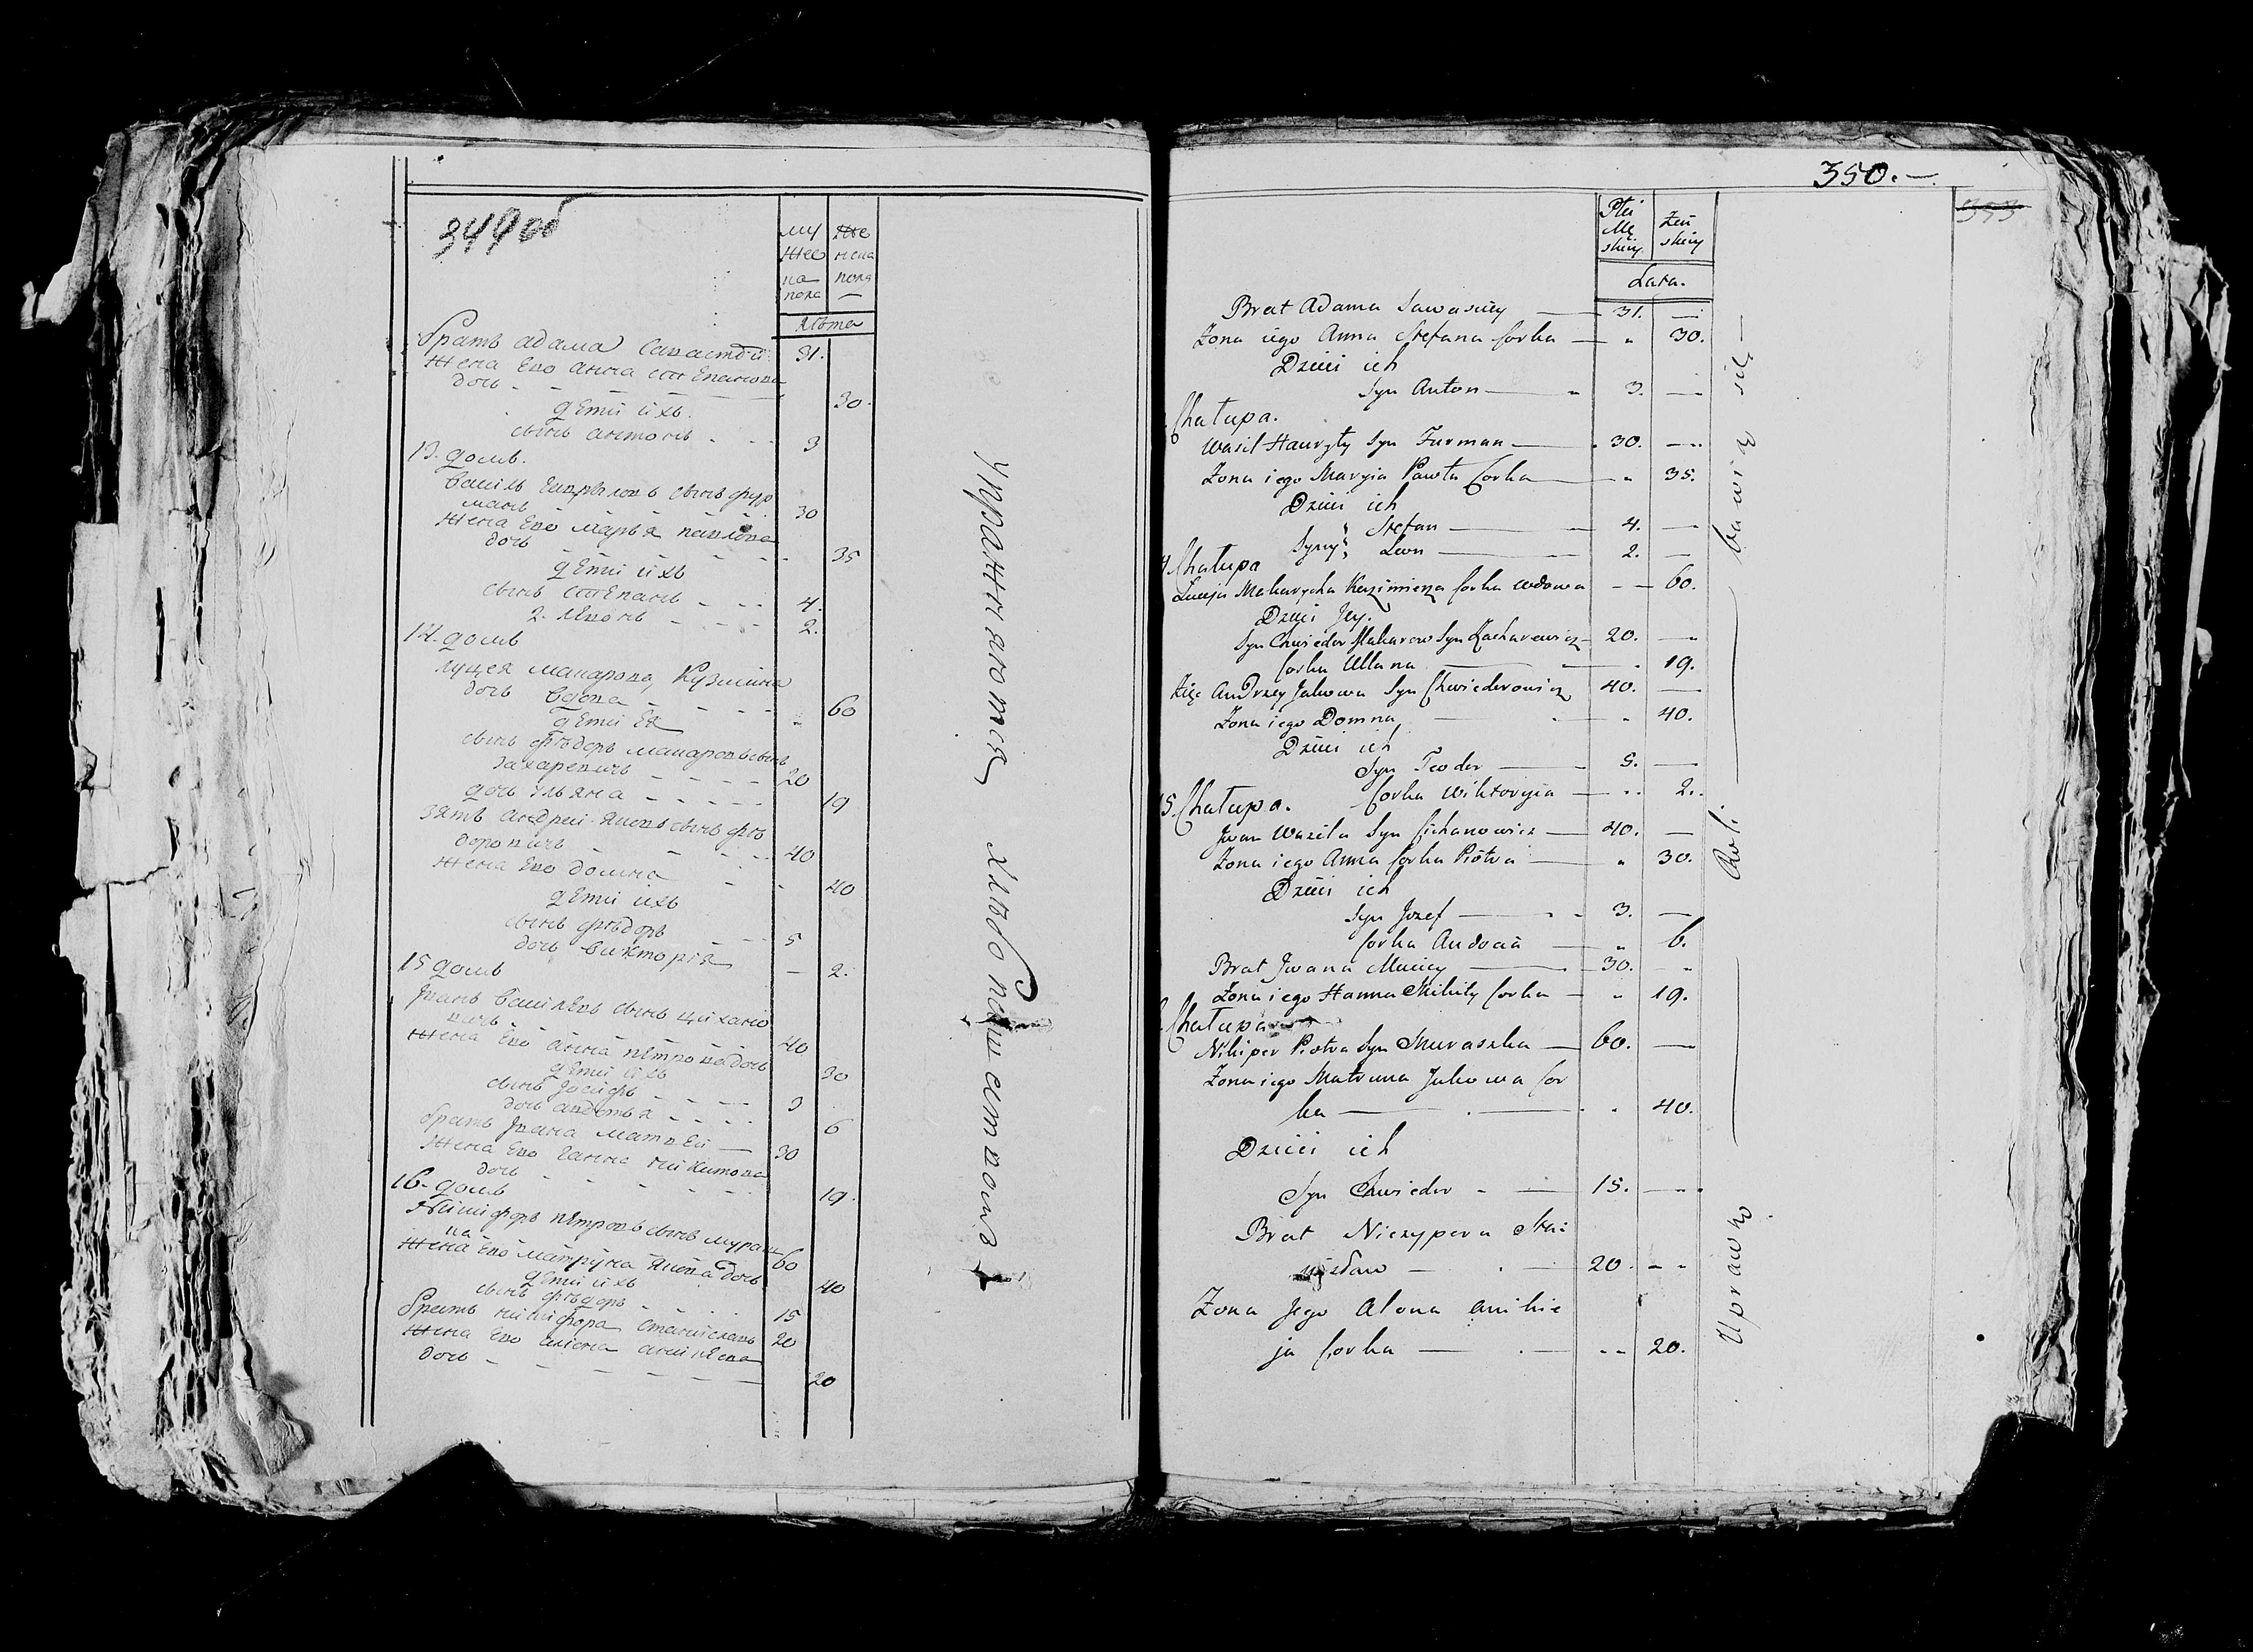 349 об
му
жес
ка
пола
же
нска
пола
—
лѣта
братъ адама Савастѣй 31.
жена Ево анна степанова
дочь - - - - 30.
дѣти ихъ.
сынъ антонъ - - 3
13. домъ.
василь гаврыловъ сынъ фур
манъ - - - - 30
жена Ево марья павлова
дочь - - - - 35
дѣти ихъ
сынъ степанъ - - - 4.
2. левонъ - - - - 2.
14. домъ
луцея макарова, Кузмина
дочь вдова - - - - 60
дѣти Ея
сынъ фѣдоръ макаровъ сынъ
захаревичъ - - - - 20
дочь ульяна - - - - - 19
зять андрей яковъ сынъ фѣ
доровичъ - - - - 40
жена Ево домна - - - 40
дѣти ихъ
сынъ фѣдоръ - - - 5
дочь викторія — 2.
15 домъ
Іванъ василевъ сынъ цихано
вичъ - - - - 40
жена Ево анна петрова дочь 30
дѣти ихъ
сынъ Іосифъ - - - - 3
дочь авдотья - - - - 6
братъ Івана матвей — 30
жена Ево ганна никитова
дочь - - - - - - 19.
16. домъ
Никифоръ петровъ сынъ мураш
ка 60
жена Ево матруна якова дочь 40
дѣти ихъ
сынъ фѣдоръ - - - - 15
братъ никифора станиславъ 20
жена Ево алена
дочь - - - - - - 20
Упражняютя хлебопашествомъ
350.—
393
Płci
Mę
skiey
Żeń
skiey
Lata.
Brat Adama Sawasciey — 31. —
Zona iego Anna Stefana Corka — „ 30.
Dzieci ich
Syn Anton — „ 3. —
Chałupa.
Wasil Hauryły Syn Furman — 30. —
Zona iego Maryia Pawła Corka — „ 35.
Dzieci ich
Stefan — 4. —
Syny: Leon — 2. —
Chałupa
Łucyja Makarycha Kazimierza Corka wdowa - — 60.
Dzieci Jey.
Syn Chwiedor Makarow Syn Zacharewicz - 20. —
Corka Ullana — 19.
Zięć Andrzey Jakowa Syn Chwiederowicz 40. —
Zona iego Domna, — „ 40.
Dzieci ich
Syn Teodor — 5. —
Corka Wiktoryia — „ 2.
15. Chałupa.
Jwan Wasila Syn Cichanowicz — 40. —
Zona iego Anna Corka Piotra — „ 30.
Dzieci ich
Syn Jozef — 3. —
Corka Audocia — „ 6.
Brat Jwana Maciey — 30. - „
Zona iego Hanna Mikity Corka — „ 19.
Chałupa
Nikipor Piotra Syn Muraszka — 60. —
Zona iego Matruna Jakowa Cor
ka — 40.
Dzieci ich
Syn Chwiedor - — 15. —
Brat Niczypora Sta:
nisław — 20. - -
Zona Jego Alona
ja Corka — - - 20.
Uprawą — Roli. — bawią się —